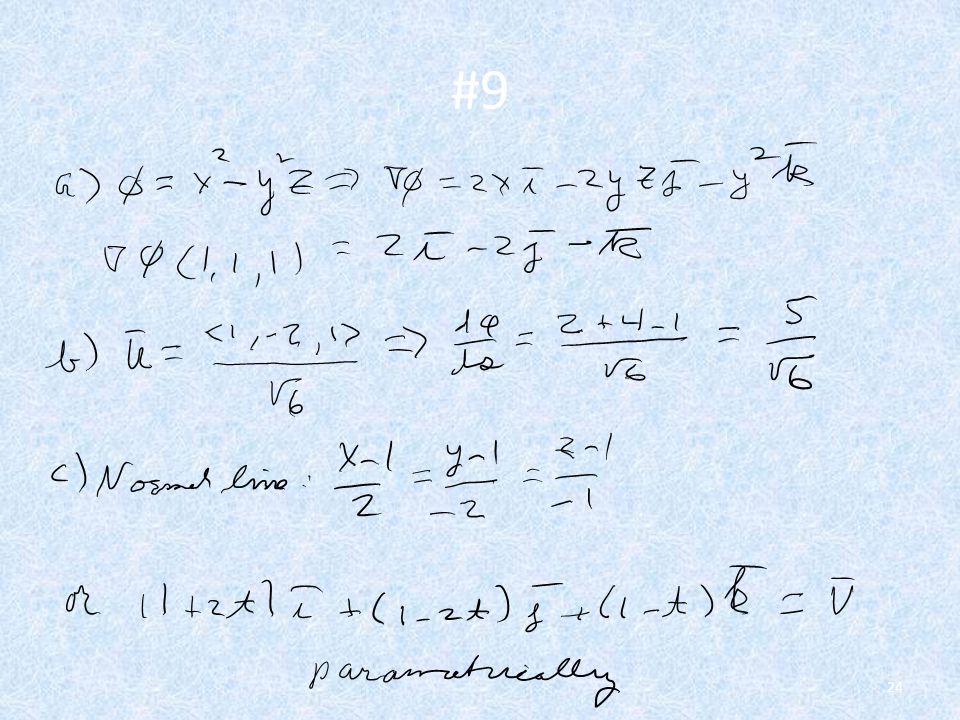 #9
a) φ = x² - y²z ⇒ ∇φ = 2x i̅ - 2yz j̅ - y² k̅
∇φ(1,1,1) = 2i̅ - 2j̅ - k̅
b) u̅ = <1,-2,1>/√6 ⇒ dφ/ds = (2+4-1)/√6 = 5/√6
c) Normal line: (x-1)/2 = (y-1)/-2 = (z-1)/-1
or (1+2t) i̅ + (1-2t) j̅ + (1-t) k̅ = v̅
parametrically
24